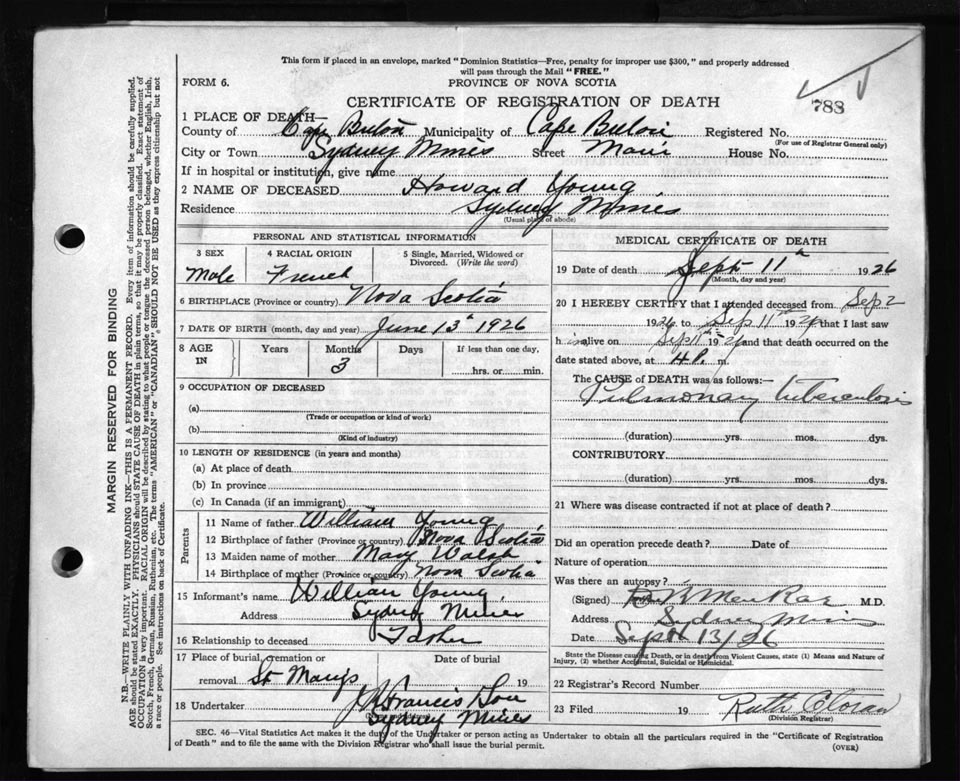 This form if placed in an envelope, marked "Dominion Statistics—Free, penalty for improper use $300," and properly addressed
will pass through the Mail "FREE."
FORM 6.
PROVINCE OF NOVA SCOTIA
788
CERTIFICATE OF REGISTRATION OF DEATH
1 PLACE OF DEATH—
County of Cape Breton Municipality of Cape Breton Registered No.
(For use of Registrar General only)
City or Town Sydney Mines Street Main House No.
If in hospital or institution, give name
2 NAME OF DECEASED Howard Young
Residence Sydney Mines
(Usual place of abode)
PERSONAL AND STATISTICAL INFORMATION
3 SEX 4 RACIAL ORIGIN 5 Single, Married, Widowed or Divorced. (Write the word)
Male French
6 BIRTHPLACE (Province or country) Nova Scotia
7 DATE OF BIRTH (month, day and year) June 13th 1926
8 AGE IN Years Months Days If less than one day,
3 hrs. or min.
9 OCCUPATION OF DECEASED
(a)
(Trade or occupation or kind of work)
(b)
(Kind of industry)
10 LENGTH OF RESIDENCE (in years and months)
(a) At place of death
(b) In province
(c) In Canada (if an immigrant)
Parents
11 Name of father William Young
12 Birthplace of father (Province or country) Nova Scotia
13 Maiden name of mother Mary Walsh
14 Birthplace of mother (Province or country) Nova Scotia
15 Informant's name William Young
Address Sydney Mines
16 Relationship to deceased Father
17 Place of burial, cremation or removal St Marys Date of burial 19
18 Undertaker Francis Son
Sydney Mines
MEDICAL CERTIFICATE OF DEATH
19 Date of death Sept 11th 1926
(Month, day and year)
20 I HEREBY CERTIFY that I attended deceased from Sep 2
1926 to Sep 11th 192 that I last saw
h im alive on Sep 11th 192 and that death occurred on the
date stated above, at 4 P. m.
The CAUSE of DEATH was as follows:—
Pulmonary tuberculosis
(duration) yrs. mos. dys.
CONTRIBUTORY
(duration) yrs. mos. dys.
21 Where was disease contracted if not at place of death?
Did an operation precede death? Date of
Nature of operation
Was there an autopsy?
(Signed) M.D.
Address Sydney Mines
Date Sept 13/26
State the Disease causing Death, or in death from Violent Causes, state (1) Means and Nature of
Injury, (2) whether Accidental, Suicidal or Homicidal.
22 Registrar's Record Number
23 Filed 19 Ruth Cloran
(Division Registrar)
SEC. 46—Vital Statistics Act makes it the duty of the Undertaker or person acting as Undertaker to obtain all the particulars required in the "Certificate of Registration
of Death" and to file the same with the Division Registrar who shall issue the burial permit.
(OVER)
MARGIN RESERVED FOR BINDING
N.B.—WRITE PLAINLY WITH UNFADING INK—THIS IS A PERMANENT RECORD. Every item of information should be carefully supplied.
AGE should be stated EXACTLY. PHYSICIANS should STATE CAUSE OF DEATH in plain terms, so that it may be properly classified. Exact statement of
OCCUPATION is very important. RACIAL ORIGIN will be described by stating to what people or tongue the deceased person belonged, whether English, Irish,
Scotch, French, German, Russian, Ruthenian, etc. The terms "AMERICAN" or "CANADIAN" SHOULD NOT BE USED as they express citizenship but not
a race or people. See instructions on back of Certificate.